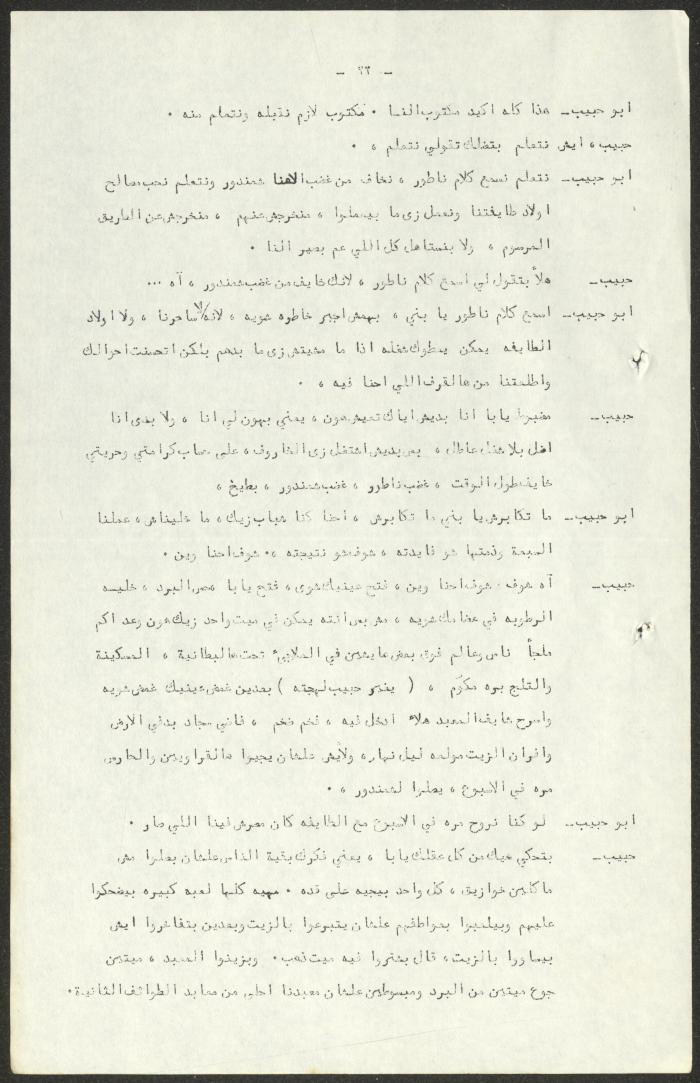 - ٢٣ -
ابو حبيب_ هذا كله اكيد مكتوب النا ٠ مكتوب لازم نقبله ونتعلم منه ٠
حبيب ، ايش نتعلم بتضلك تقولي نتعلم ، ٠
ابو حبيب_ نتعلم نسمع كلام ناطور ، نخاف من غضب الاهنا شمندور ونتعلم نحب مصالح
اولاد طايفتنا ونعمل زي ما بيعملوا ، منخرجش عنهم ، منخرجش عن الطريق
المرسوم ، ولا بنستاهل كل اللي عم بصير النا ٠
حبيب_ هلأ بتقول لي اسمع كلام ناطور ، لانك خايف من غضب شمندور ، آه ...
ابو حبيب_ اسمع كلام ناطور يا بني ، بهمش اجبر خاطره شويه ، لانه لا ساحرنا ، ولا اولاد
الطايفه يمكن يعطوك شغله اذا ما مشيتش زي ما بدهم بلكن اتحسنت احوالك
واطلعتنا من هالقرف اللي احنا فيه ، ٠
حبيب_ مضبوط يابا انا بديش اياك تعيش هون ، يعني بهون لي انا ، ولا بدي انا
اضل بلا شغل عاطل ، بس بديش اشتغل زي الخاروف ، على حساب كرامتي وحريتي
خايف طول الوقت ، غضب ناطور ، غضب شمندور ، بطيخ ،
ابو حبيب_ ما تكابرش يا بني ما تكابرش ، احنا كنا شباب زيك ، ما خليناش ، عملنا
السبعة وذمتها شو فايدته ، شوف شو نتيجته ،٠ شوف احنا وين ٠
حبيب_ آه شوف ٠ شوف احنا وين ، فتح عينيك شوى ، فتح يابا ، مص البرد ، خليه
الرطوبه في عظامك شويه ، مش بس انته يمكن في ميت واحد زيك هون وعد اكم
ملجأ ناس وعالم فوق بعض عايشين في الملاجيء تحت هالبطانية ، المسكينة
والثلج بره مكوّم ، ( يغير حبيب لهجته ) بعدين غمض عينيك غمض شويه
واسرح شايف المعبد هلأ ادخل فيه ، فخم فخم ، فاضي سجاد بدفي الارض
وافران الزيت مولعه ليل نهار ، ولأيش علشان يجيوا هالقراويين والحارس
مره في الاسبوع ، يصلوا لشمندور ، ٠
ابو حبيب_ لو كنا نروح مره في الاسبوع مع الطايفه كان مصرش فينا اللي صار ٠
حبيب_ بتحكي هيك من كل عقلك يابا ، يعني فكرك بقية الناس علشان بصلوا مش
ماكلين خوازيق ، كل واحد بيجيه على قده ٠ مهيه كلها لعبه كبيره بيضحكوا
عليهم وبيلعبوا بعواطفهم علشان يتبرعوا بالزيت وبعدين بتفاخروا ايش
بيساووا بالزيت ، قال بشتروا فيه ميت ذهب ٠ وبزينوا المعبد ، ميتين
جوع ميتين من البرد ومبسوطين علشان معبدنا احلى من معابد الطوائف الثانية ٠